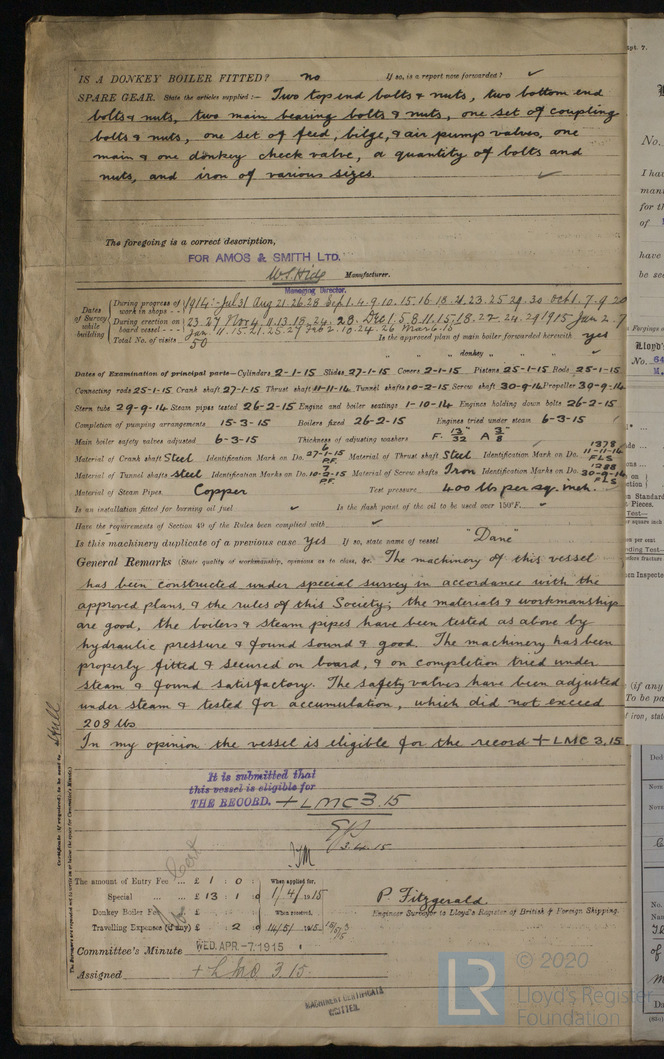 IS A DONKEY BOILER FITTED? no If so, is a report now forwarded? ✓
SPARE GEAR. State the articles supplied:— Two top end bolts & nuts, two bottom end
bolts & nuts, two main bearing bolts & nuts, one set of coupling
bolts & nuts, one set of feed, bilge, & air pump valves, one
main & one donkey check valve, a quantity of bolts and
nuts, and iron of various sizes. ✓
The foregoing is a correct description,
FOR AMOS & SMITH LTD.
Manufacturer.
Managing Director.
Dates of Survey while building
During progress of work in shops - - 1914:- Jul 31 Aug 21. 26. 28 Sep 1. 4. 9. 10. 15. 16. 18. 21. 23. 25. 29. 30 Oct 1. 7. 9. 20
During erection on board vessel - - - 23. 27 Nov 4. 11. 13. 18. 24. 28. Dec 1. 5. 8. 11. 15. 18. 22. 24. 29 1915 Jan 2. 7
Jan 11. 15. 21. 25. 27 Feb 2. 10. 24. 26 Mar 6. 15
Total No. of visits 50 Is the approved plan of main boiler forwarded herewith yes
" " " donkey " " ✓
Dates of Examination of principal parts—Cylinders 2-1-15 Slides 27-1-15 Covers 2-1-15 Pistons 25-1-15 Rods 25-1-15
Connecting rods 25-1-15 Crank shaft 27-1-15 Thrust shaft 11-11-14 Tunnel shafts 10-2-15 Screw shaft 30-9-14 Propeller 30-9-14
Stern tube 29-9-14 Steam pipes tested 26-2-15 Engine and boiler seatings 1-10-14 Engines holding down bolts 26-2-15
Completion of pumping arrangements 15-3-15 Boilers fixed 26-2-15 Engines tried under steam 6-3-15
Main boiler safety valves adjusted 6-3-15 Thickness of adjusting washers F. 13/32 A 3/8
Material of Crank shaft Steel Identification Mark on Do. 27-1-15 P.F. Material of Thrust shaft Steel Identification Mark on Do. 1378 11-11-14 FLS
Material of Tunnel shafts steel Identification Marks on Do. 10-2-15 P.F. Material of Screw shafts Iron Identification Marks on Do. 1288 30-9-14 FLS
Material of Steam Pipes Copper Test pressure 400 lbs per sq. inch.
Is an installation fitted for burning oil fuel ✓ Is the flash point of the oil to be used over 150°F. ✓
Have the requirements of Section 49 of the Rules been complied with ✓
Is this machinery duplicate of a previous case yes If so, state name of vessel "Dane"
General Remarks (State quality of workmanship, opinions as to class, &c. The machinery of this vessel
has been constructed under special survey in accordance with the
approved plans, & the rules of this Society; the materials & workmanship
are good, the boilers & steam pipes have been tested as above by
hydraulic pressure & found sound & good. The machinery has been
properly fitted & secured on board, & on completion tried under
steam & found satisfactory. The safety valves have been adjusted
under steam & tested for accumulation, which did not exceed
208 lbs
In my opinion the vessel is eligible for the record + LMC 3.15
It is submitted that
this vessel is eligible for
THE RECORD. + LMC 3.15
3.4.15
The amount of Entry Fee ... £ 1 : 0 : When applied for,
Special ... £ 13 : 1 : 0 1/4/1915
Donkey Boiler Fee £ When received,
Travelling Expenses (if any) £ 2 : 0
P. Fitzgerald.
Engineer Surveyor to Lloyd's Register of British & Foreign Shipping.
Committee's Minute WED. APR.-7.1915
Assigned + LMC 3.15.
MACHINERY CERTIFICATE
WRITTEN.
Hull
© 2020
LR
Lloyd's Register
Foundation